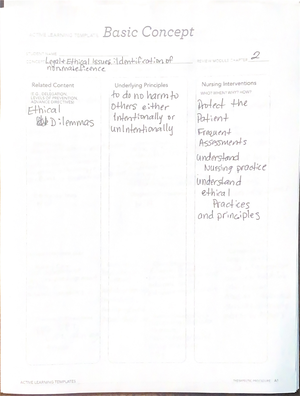 ACTIVE LEARNING TEMPLATE: Basic Concept
Legal & Ethical Issues: Identification of
nonmaleficence
REVIEW MODULE CHAPTER 2
Related Content
(E.G., DELEGATION,
LEVELS OF PREVENTION,
ADVANCE DIRECTIVES)
Ethical
Dilemmas
Underlying Principles
to do no harm to
others either
intentionally or
unintentionally
Nursing Interventions
WHO? WHEN? WHY? HOW?
Protect the
Patient
Frequent
Assessments
understand
Nursing practice
understand
ethical
Practices
and principles
ACTIVE LEARNING TEMPLATES